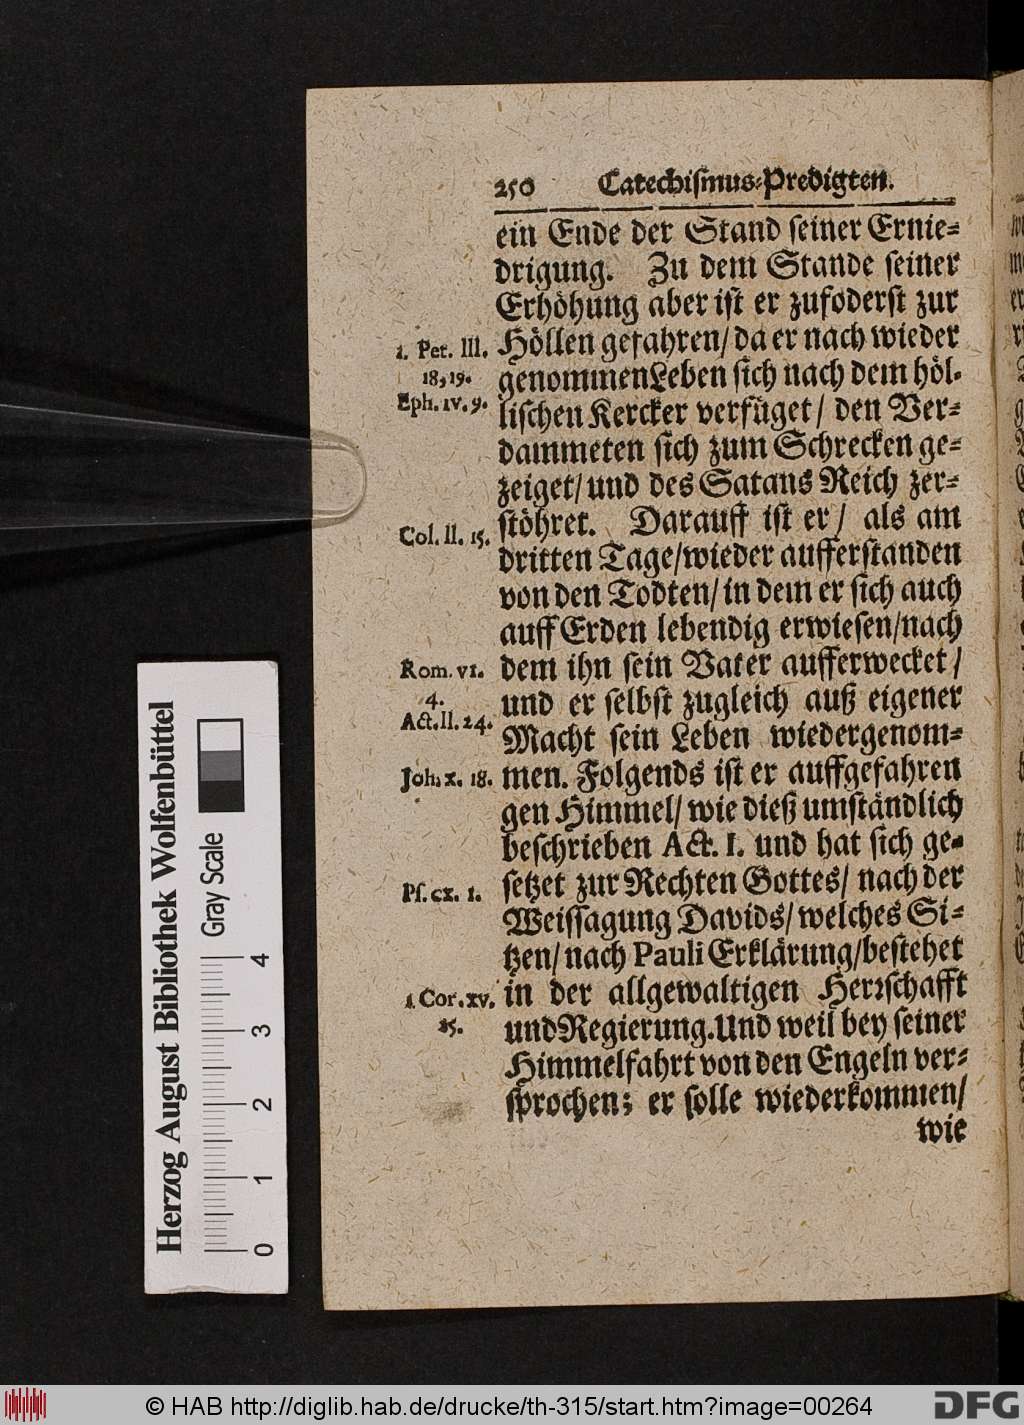 250 Catechiſmus-Predigten.
ein Ende der Stand ſeiner Ernie-
drigung. Zu dem Stande ſeiner
Erhöhung aber iſt er zufoderſt zur
Höllen gefahren/ da er nach wieder
genommen Leben ſich nach dem höl-
liſchen Kercker verfüget/ den Ver-
dammeten ſich zum Schrecken ge-
zeiget/ und des Satans Reich zer-
ſtöhret. Darauff iſt er/ als am
dritten Tage/ wieder aufferſtanden
von den Todten/ in dem er ſich auch
auff Erden lebendig erwieſen/ nach
dem ihn ſein Vater aufferwecket/
und er ſelbſt zugleich auß eigener
Macht ſein Leben wiedergenom-
men. Folgends iſt er auffgefahren
gen Himmel/ wie dieß umſtändlich
beſchrieben Act. I. und hat ſich ge-
ſetzet zur Rechten Gottes/ nach der
Weiſſagung Davids/ welches Si-
tzen/ nach Pauli Erklärung/ beſtehet
in der allgewaltigen Herꝛſchafft
und Regierung. Und weil bey ſeiner
Himmelfahrt von den Engeln ver-
ſprochen; er ſolle wiederkommen/
wie
1. Pet. III.
18, 19.
Eph. IV. 9.
Col. II. 15.
Rom. VI.
4.
Act. II. 24.
Joh. X. 18.
Pſ. CX. 1.
1 Cor. XV.
25.
Herzog August Bibliothek Wolfenbüttel
Gray Scale
0 1 2 3 4
© HAB http://diglib.hab.de/drucke/th-315/start.htm?image=00264
DFG